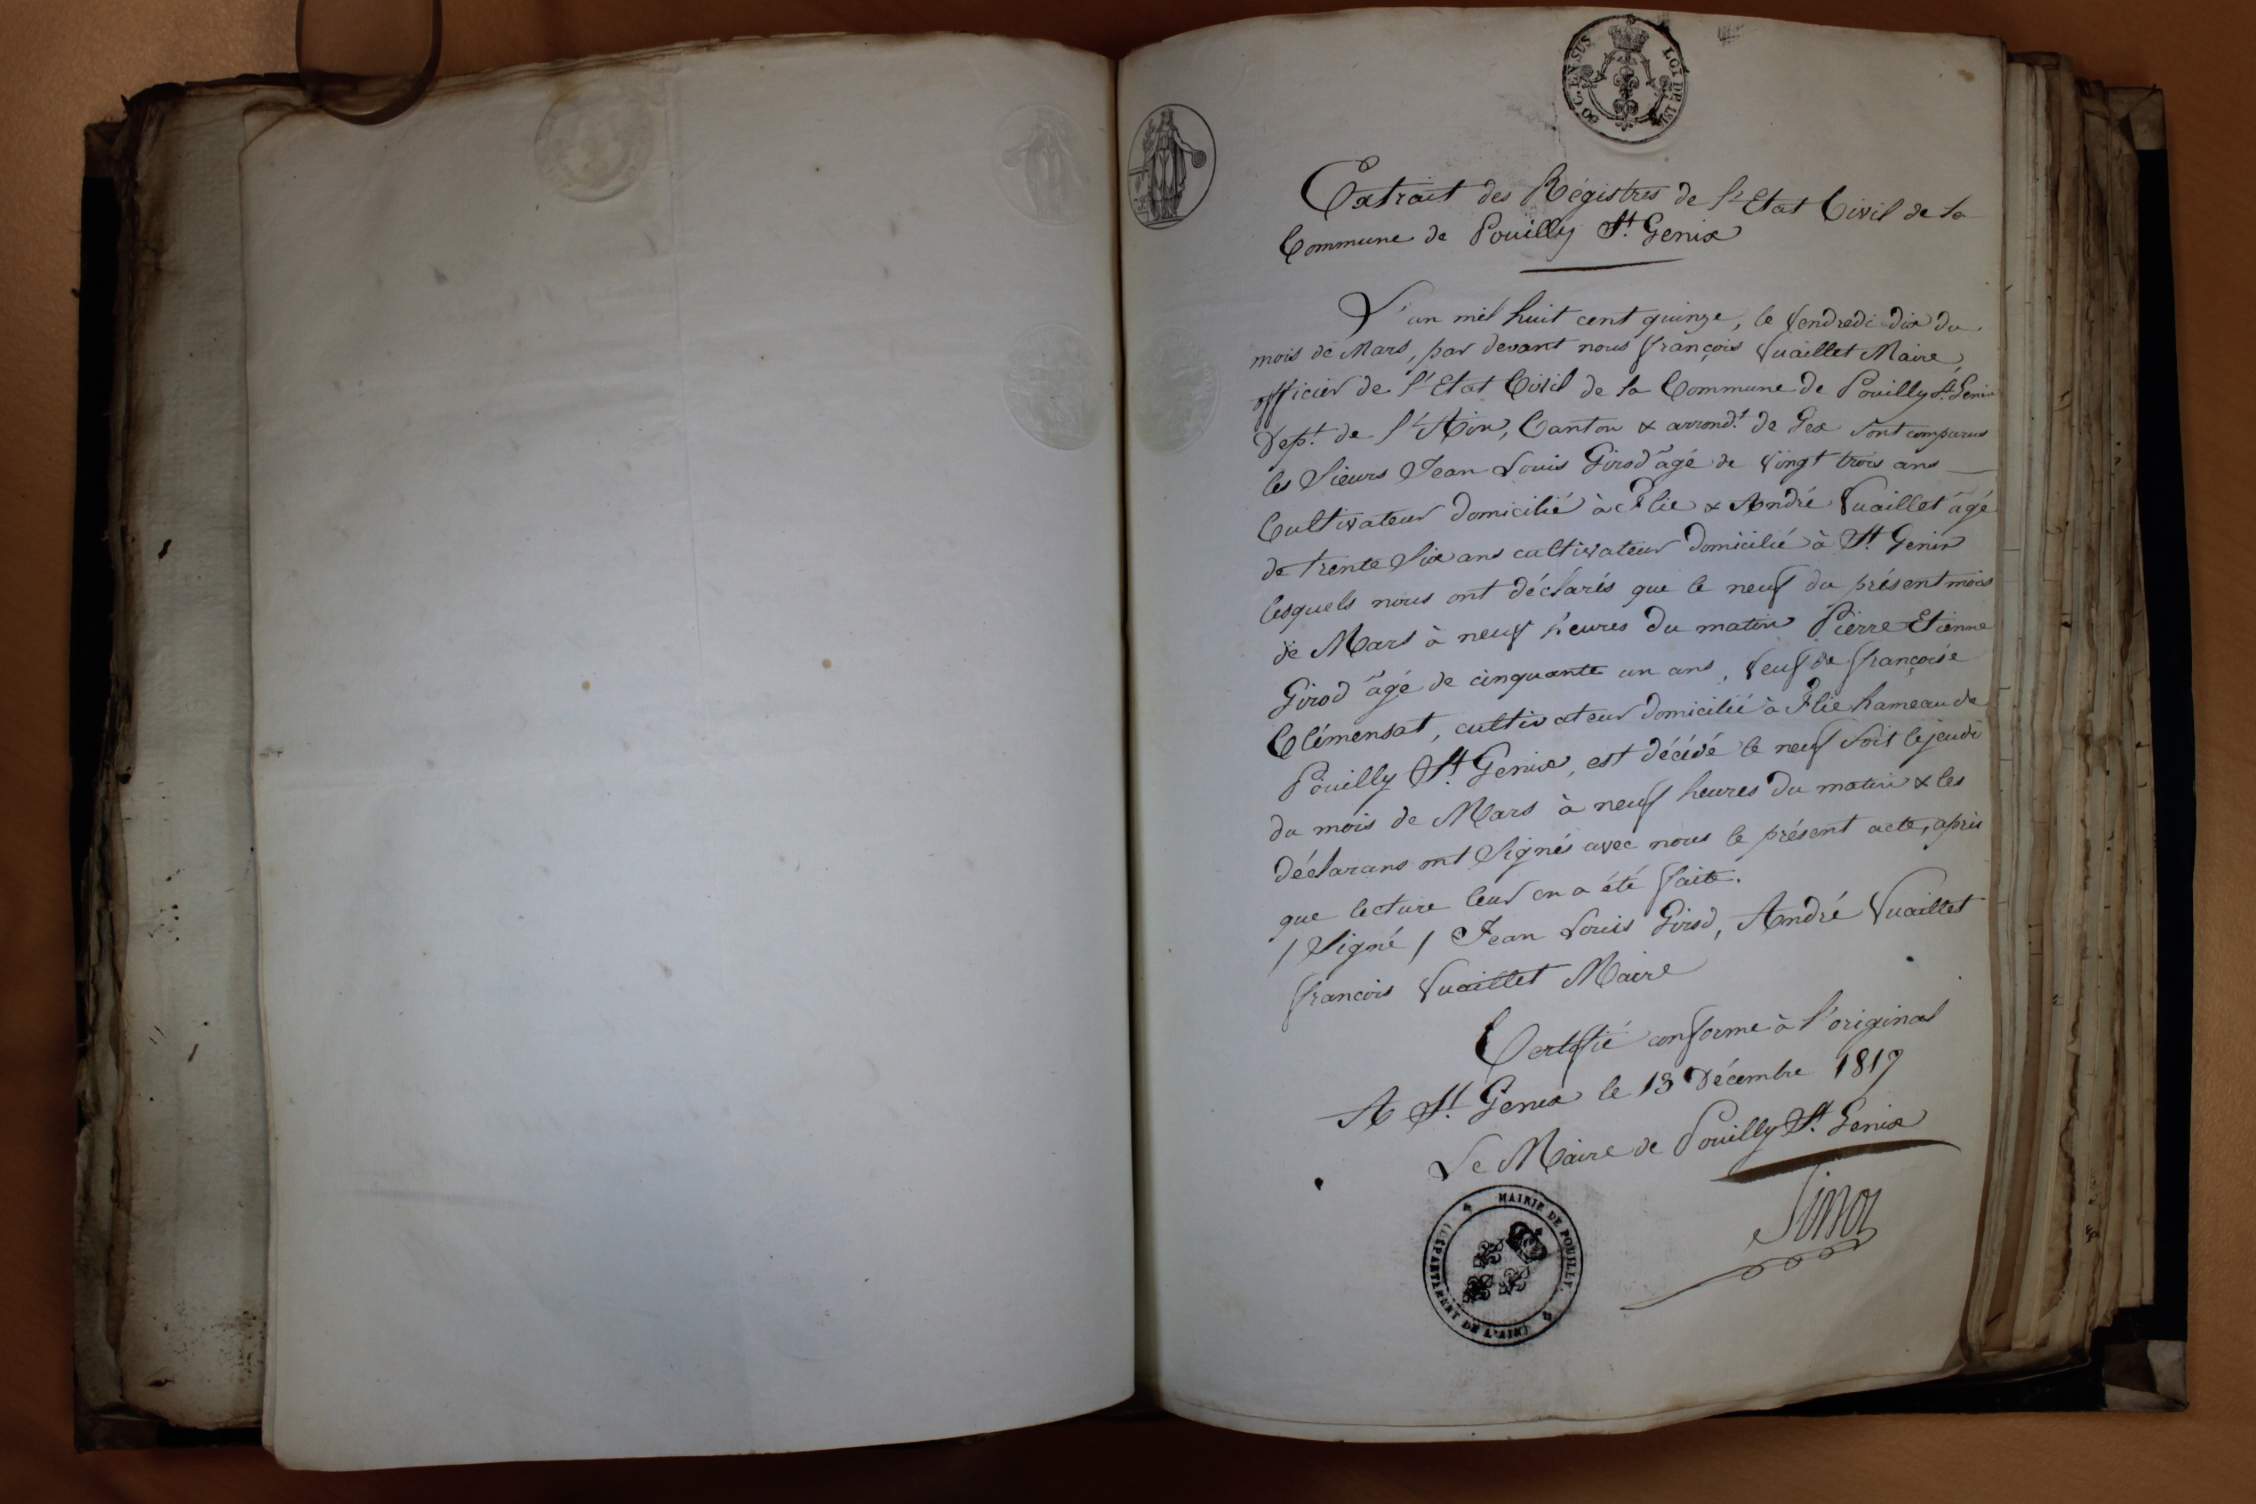 80 C. EN SUS
LOI DE 181
Extrait des Régistres de l'Etat Civil de la
Commune de Pouilly St. Genix
L'an mil huit cent quinze, le Vendredi dix du
mois de Mars, par devant nous françois Vuaillet Maire,
officier de l'Etat Civil de la Commune de Pouilly St. Genix
Dept. de l'Ain, Canton & arrondt. de Gex sont comparus
les Sieurs Jean Louis Girod âgé de Vingt trois ans
Cultivateur domicilié à Flie & André Vuaillet âgé
de trente Six ans cultivateur domicilié à St. Genix
lesquels nous ont déclarés que le neuf du présent mois
de Mars à neuf heures du matin Pierre Etienne
Girod âgé de cinquante un ans, Veuf de françoise
Clémensat, cultivateur domicilié à Flie hameau de
Pouilly St. Genix, est décédé le neuf soit le jeudi
du mois de Mars à neuf heures du matin & les
déclarans ont Signés avec nous le présent acte, après
que lecture leur en a été faite.
/ Signé / Jean Louis Girod, André Vuaillet
françois Vuaillet Maire
Certifié conforme à l'original
A St. Genix le 13 Décembre 1817
Le Maire de Pouilly St. Genix
MAIRIE DE POUILLY.
(DÉPARTEMENT DE L'AIN)